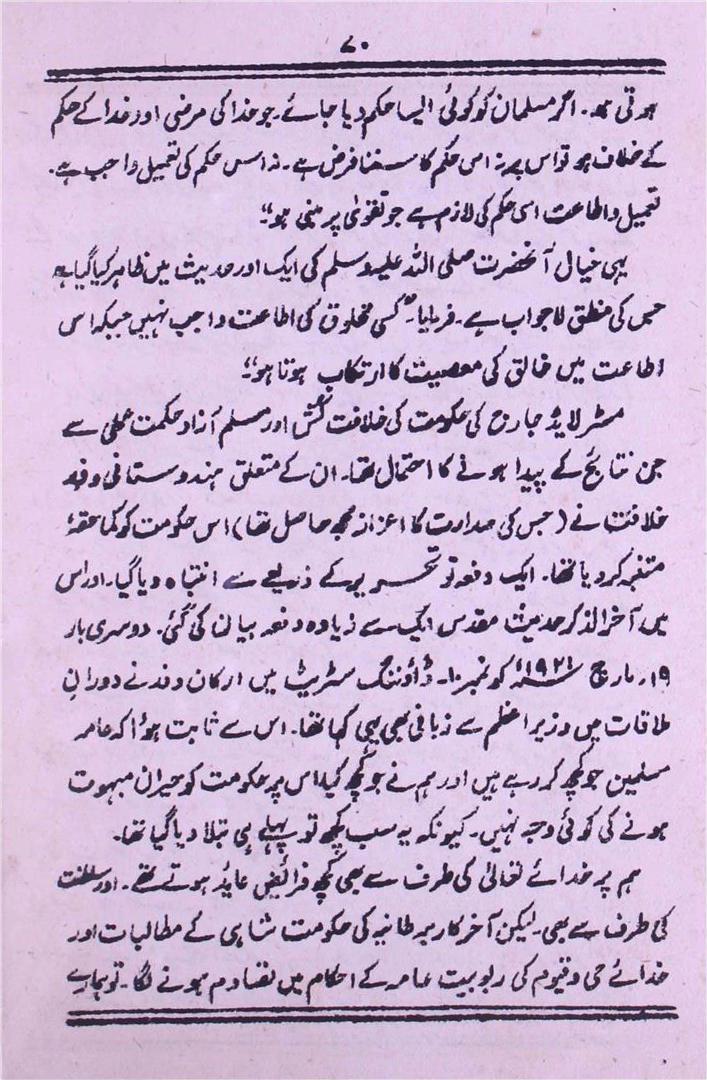 ۷۰
ہوتی ہو۔ اگر مسلمان کو کوئی ایسا حکم دیا جائے۔ جو خدا کی مرضی اور خدا کے حکم
کے خلاف ہو تو اس پر نہ اس حکم کا سننا فرض ہے۔ نہ اس حکم کی تعمیل واجب ہے۔
تعمیل و اطاعت اسی حکم کی لازم ہے جو تقویٰ پر مبنی ہو"
یہی خیال آنحضرت صلی اللہ علیہ وسلم کی ایک اور حدیث میں ظاہر کیا گیا ہے
جس کی منطق لاجواب ہے۔ فرمایا۔ "کسی مخلوق کی اطاعت واجب نہیں جبکہ اس
اطاعت میں خالق کی معصیت کا ارتکاب ہوتا ہو"
مسٹر لایڈ جارج کی حکومت کی خلافت کش اور مسلم آزاد حکمت عملی سے
جن نتائج کے پیدا ہونے کا احتمال تھا۔ ان کے متعلق ہندوستانی وفد
خلافت نے (جس کی صدارت کا اعزاز مجھے حاصل تھا) اس حکومت کو کماحقہٗ
متنبہ کر دیا تھا۔ ایک دفعہ تو تحریر کے ذریعے سے انتباہ دیا گیا۔ اور اس
میں آخر الذکر حدیث مقدس ایک سے زیادہ دفعہ بیان کی گئی۔ دوسری بار
۱۹۔ مارچ ۱۹۲۰ء کو نمبر ۱۰۔ ڈاؤننگ سٹریٹ میں ارکان وفد نے دورانِ
ملاقات میں وزیر اعظم سے زبانی بھی یہی کہا تھا۔ اس سے ثابت ہوا کہ عامہ
مسلمین جو کچھ کر رہے ہیں اور ہم نے جو کچھ کیا، اس پر حکومت کو حیران مبہوت
ہونے کی کوئی وجہ نہیں۔ کیونکہ یہ سب کچھ تو پہلے ہی بتلا دیا گیا تھا۔
ہم پر خدائے تعالیٰ کی طرف سے بھی کچھ فرائض عاید ہوتے تھے۔ اور سلطنت
کی طرف سے بھی۔ لیکن آخرکار برطانیہ کی حکومت شاہی کے مطالبات اور
خدائے حی و قیوم کی ربوبیت عامہ کے احکام میں تصادم ہونے لگا۔ تو ہمارے